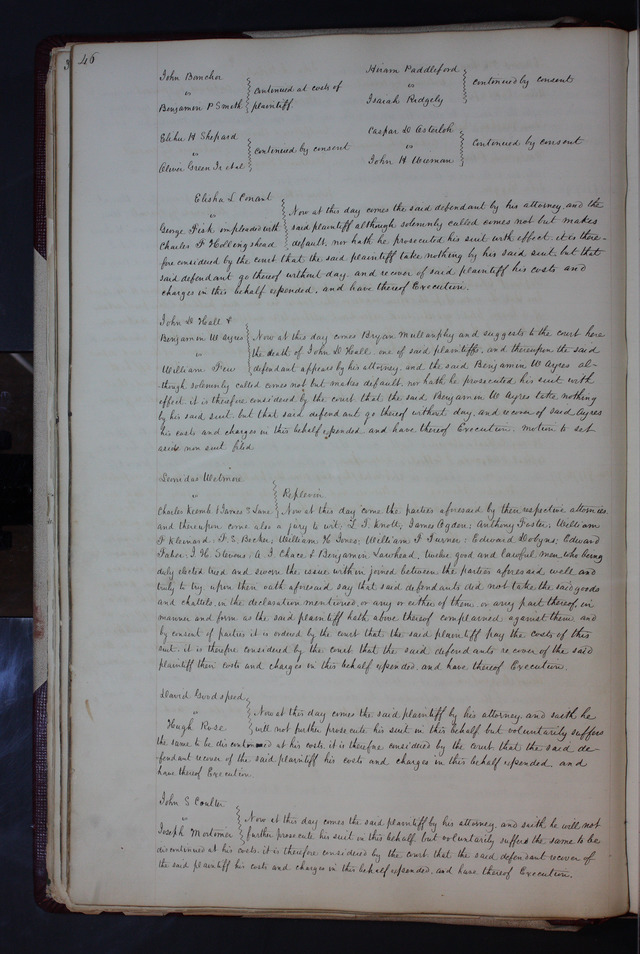 46
John Boncher
vs
Benjamin P Smith
continued at costs of
plaintiff
Hiram Paddleford
vs
Isaiah Ridgely
continued by consent
Elihu H Shepard
vs
Oliver Green Jr et al
continued by consent
Caspar D
vs
John H
continued by consent
Elisha L Conant
vs
George Fisk impleaded with
Charles F Hollengshead
Now at this day comes the said defendant by his attorney and the
said plaintiff although solemnly called comes not but makes
default, nor hath he prosecuted his suit with effect. it is there-
fore considered by the court that the said plaintiff take nothing by his said suit but that
said defendant go thereof without day. and recover of said plaintiff his costs and
charges in this behalf expended. and have thereof Execution.
John D Hall &
Benjamin W Ayres
vs
William
Now at this day comes Bryan Mullanphy and suggests to the court here
the death of John D Hall one of said plaintiffs, and thereupon the said
defendant appears by his attorney, and the said Benjamin W Ayres al-
though solemnly called comes not but makes default, nor hath he prosecuted his suit with
effect. it is therefore considered by the court that the said Benjamin W Ayres take nothing
by his said suit. but that said defendant go thereof without day, and recover of said Ayres
his costs and charges in this behalf expended and have thereof Execution. motion to set
aside non suit filed.
Leonidas Wetmore
vs
Charles Keemle & James S Lane
Replevin
Now at this day come the parties aforesaid by their respective attornies
and thereupon come also a jury to wit, L. T. Knott; James Ogden; Anthony Foster; William
F Kleinard; F. E. Becker; William H Jones; William F Turner; Edward Dobyns; Edward
Faher; J. H. Stevens; A. J. Chace & Benjamin Lawhead, twelve good and lawful men who being
duly elected tried and sworn the issue within joined between the parties aforesaid well and
truly to try upon their oath aforesaid say that said defendants did not take the said goods
and chattels in the declaration mentioned or any or either of them or any part thereof, in
manner and form as the said plaintiff hath above thereof complained against them and
by consent of parties it is ordered by the court that the said plaintiff pay the costs of this
suit. it is therefore considered by the court that the said defendants recover of the said
plaintiff their costs and charges in this behalf expended, and have thereof Execution.
David Goodspeed
vs
Hugh Rose
Now at this day comes the said plaintiff by his attorney and saith he
will not further prosecute his suit in this behalf but voluntarily suffers
the same to be discontinued at his costs. it is therefore considered by the court that the said de-
fendant recover of the said plaintiff his costs and charges in this behalf expended. and
have thereof Execution.
John S Coulter
vs
Joseph Mortimer
Now at this day comes the said plaintiff by his attorney, and saith he will not
further prosecute his suit in this behalf but voluntarily suffers the same to be
discontinued at his costs. it is therefore considered by the court that the said defendant recover of
the said plaintiff his costs and charges in this behalf expended, and have thereof Execution.